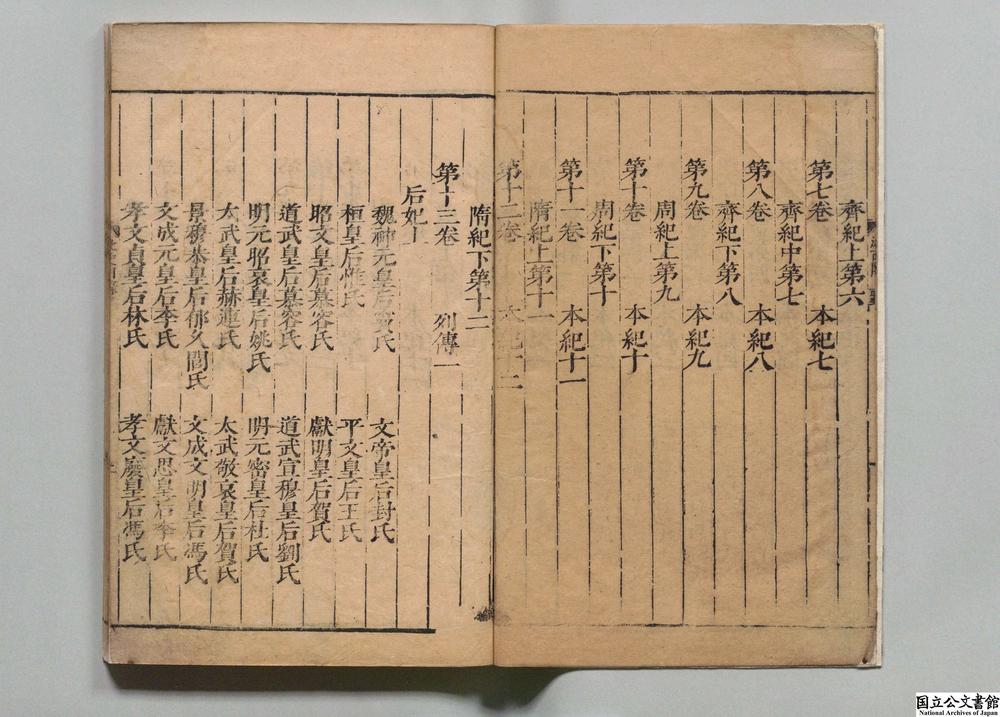 齊紀上第六
第七卷　本紀七
齊紀中第七
第八卷　本紀八
齊紀下第八
第九卷　本紀九
周紀上第九
第十卷　本紀十
周紀下第十
第十一卷　本紀十一
隋紀上第十一
第十二卷　本紀十二
隋紀下第十二
第十三卷　列傳一
后妃上
魏神元皇后竇氏　文帝皇后封氏
桓皇后惟氏　平文皇后王氏
昭文皇后慕容氏　獻明皇后賀氏
道武皇后慕容氏　道武宣穆皇后劉氏
明元昭哀皇后姚氏　明元密皇后杜氏
太武皇后赫連氏　太武敬哀皇后賀氏
景穆恭皇后郁久閭氏　文成文明皇后馮氏
文成元皇后李氏　獻文思皇后李氏
孝文貞皇后林氏　孝文廢皇后馮氏
国立公文書館
National Archives of Japan